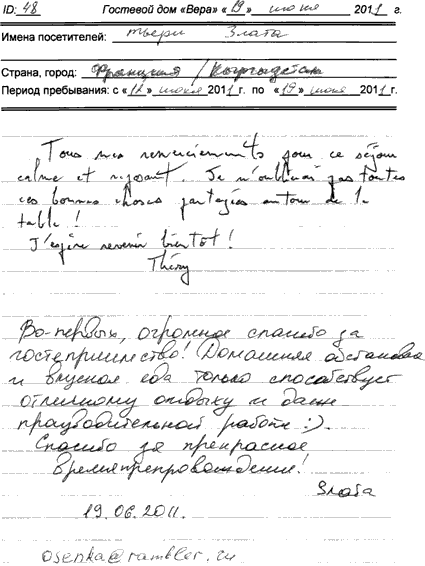 ID: 48 Гостевой дом «Вера» «19» июня 2011 г.
Имена посетителей: Тьери Злата
Страна, город: Франция / Кыргызстан
Период пребывания: с «12» июня 2011 г. по «19» июня 2011 г.
Tous mes remerciements pour ce séjour
calme et reposant. Je n'oublierai pas toutes
ces bonnes choses partagées autour de la
table !
J'espère revenir bientôt !
Thierry
Во-первых, огромное спасибо за
гостеприимство! Домашняя обстановка
и вкусная еда только способствует
отличному отдыху и даже
продуводительной работе :).
Спасибо за прекрасное
времяпрепровождение!
Злата
19.06.2011.
osenka@rambler.ru